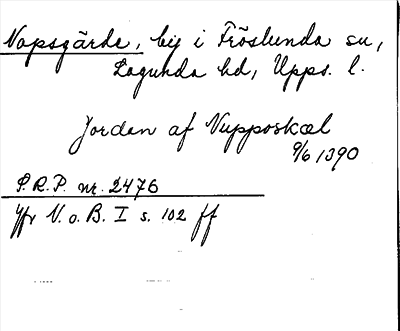 Nopsgärde, by i Fröslunda sn,
Lagunda hd, Upps. l.
Jordan af Nupposkæl
9/6 1390
S.R.P. nr. 2476
Jfr V. o. B. I s. 102 ff